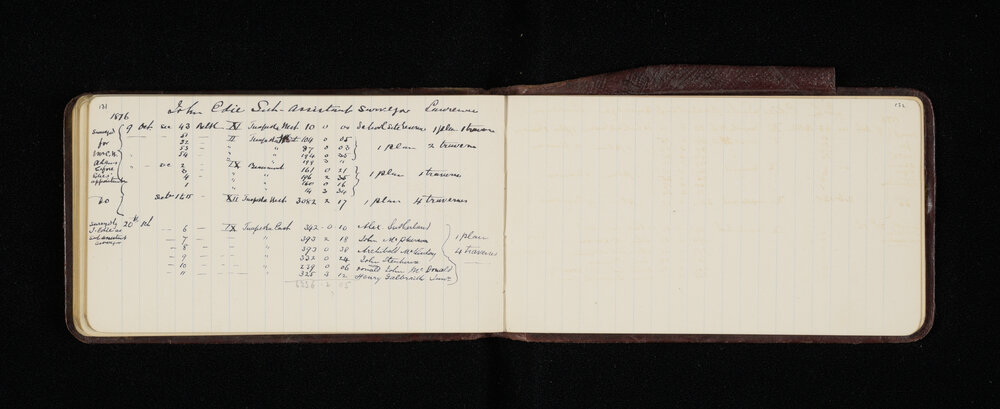 131
132
John Edie Sub-Assistant Surveyor Lawrence
1876
Surveyed 9 Oct sec 43 Block XI Tuapeka West 10 0 00 School site reserve 1 plan 1 traverse
51 — II Tuapeka West 104 0 05
for 52 — " " 87 0 03 1 plan 2 traverses
53 — " "
W.C.H. 54 — " " 194 0 05
Adams " sec 2 — IX Beaumont 161 0 21
before 3 " 196 2 35 1 plan 1 traverse
Edies' 4 — " 160 0 16
appointment 1 " 14 3 34
Do XII Tuapeka West 3082 2 17 1 plan 4 traverses
Surveyed by 20th
J. Edie as — 6 — IX Tuapeka East 342 0 10 Alex Sutherland
sub assistant — 7 — " 393 2 18 John McPherson 1 plan
surveyor — 8 — " 393 0 38 Archibald McKinlay 4 traverses
— 9 — " 332 0 24 John Stenhouse
— 10 — " 239 0 06 Donald John McDonald
— 11 — " 325 3 12 Henry Galbraith Junr